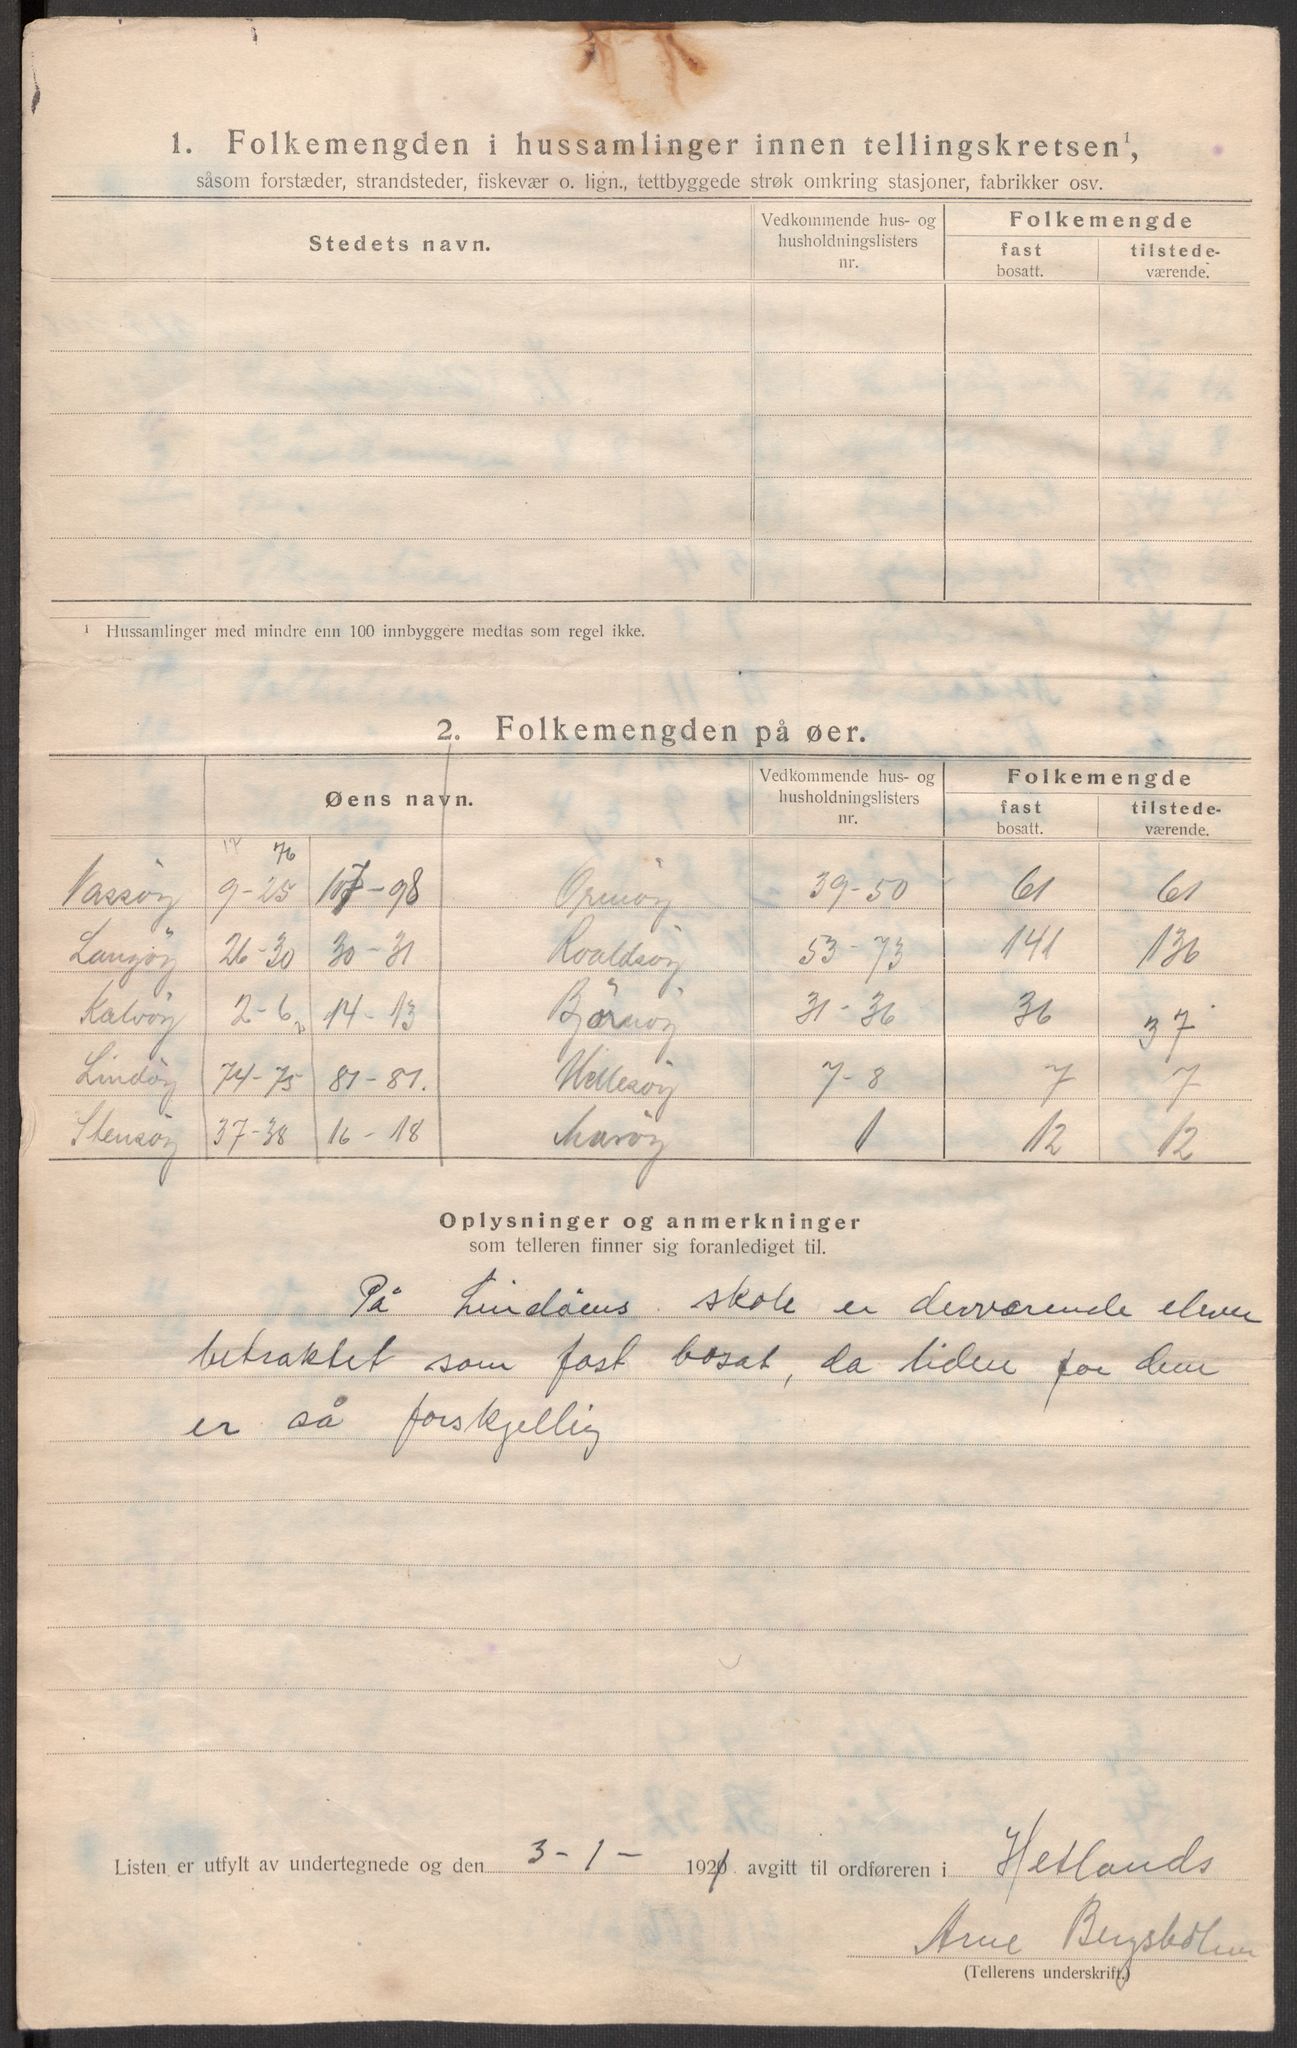 1. Folkemengden i hussamlinger innen tellingskretsen¹,
såsom forstæder, strandsteder, fiskevær o. lign., tettbyggede strøk omkring stasjoner, fabrikker osv.
Stedets navn.
Vedkommende hus- og husholdningslisters nr.
Folkemengde
fast bosatt.
tilstede-værende.
¹ Hussamlinger med mindre enn 100 innbyggere medtas som regel ikke.
2. Folkemengden på øer.
Øens navn.
Vedkommende hus- og husholdningslisters nr.
Folkemengde
fast bosatt.
tilstede-værende.
76
Vassöy 9-25 107-98 Ormöy 39-50 61 61
Langöy 26-30 30-31 Roaldsöy 53-73 141 136
Kalvöy 2-6 14-13 Björnöy 31-36 36 37
Lindöy 74-75 81-81. Hellesöy 7-8 7 7
Stensöy 37-38 16-18 1 12 12
Oplysninger og anmerkninger
som telleren finner sig foranlediget til.
På Lindöens skole er derværende elever
betraktet som fast bosat, da tiden for dem
er så forskjellig
Listen er utfylt av undertegnede og den 3-1- 1921 avgitt til ordføreren i Hetlands
Arne
(Tellerens underskrift.)